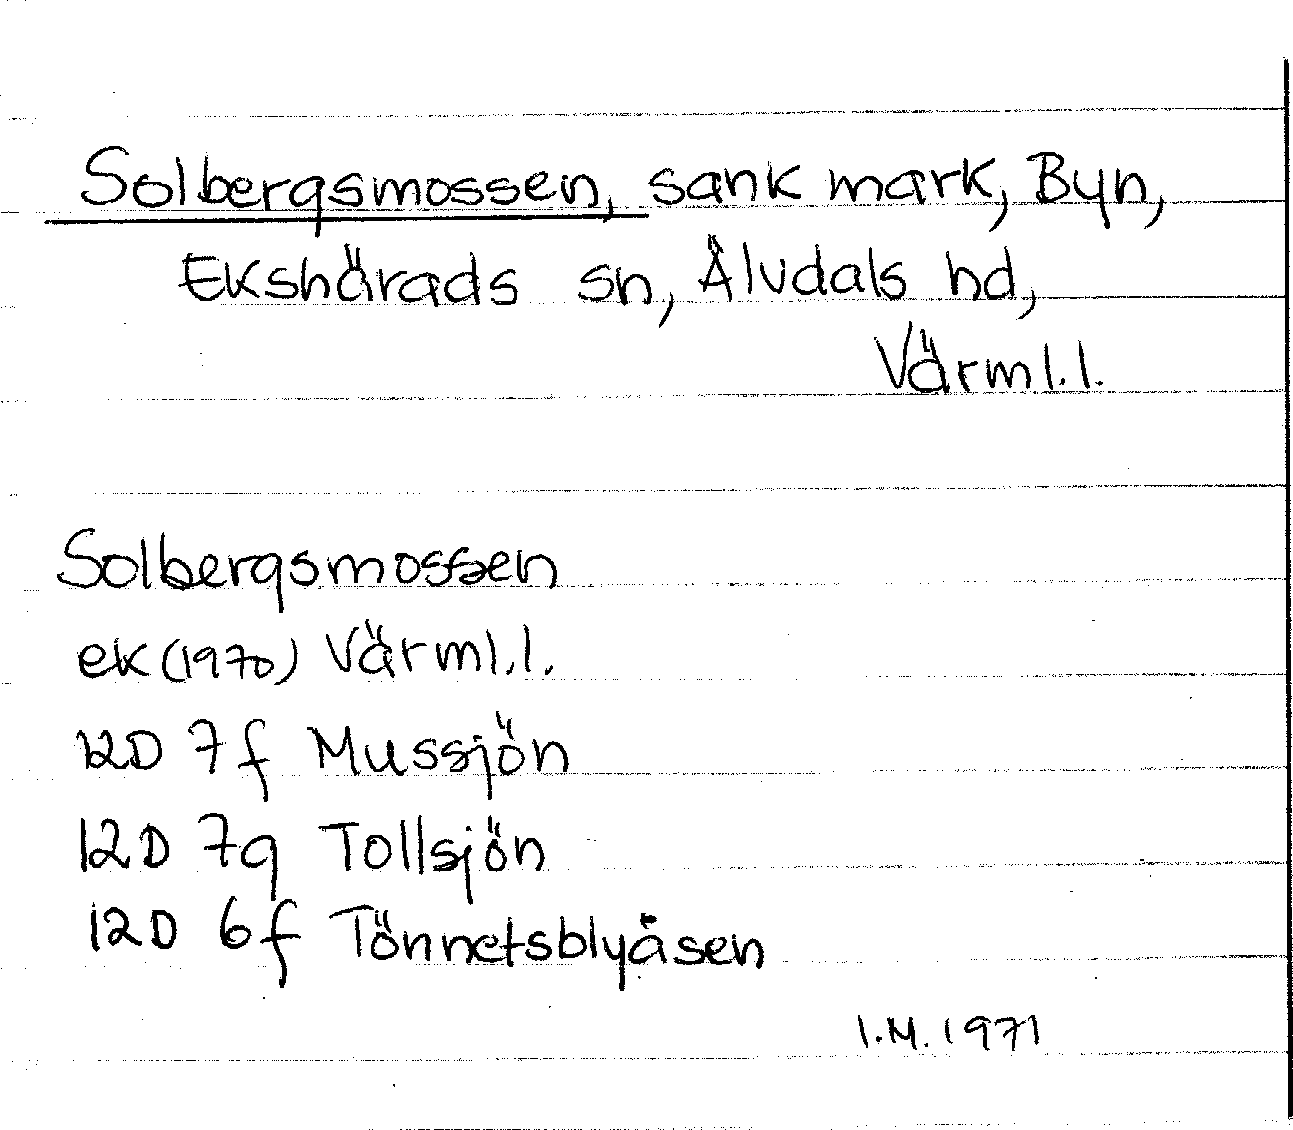 Solbergsmossen, sank mark, Byn,
Ekshärads sn, Älvdals hd,
Värml.l.
Solbergsmossen
ek (1970) Värml.l.
12D 7f Mussjön
12D 7g Tollsjön
12D 6f Tönnetsblyåsen
I.M. 1971